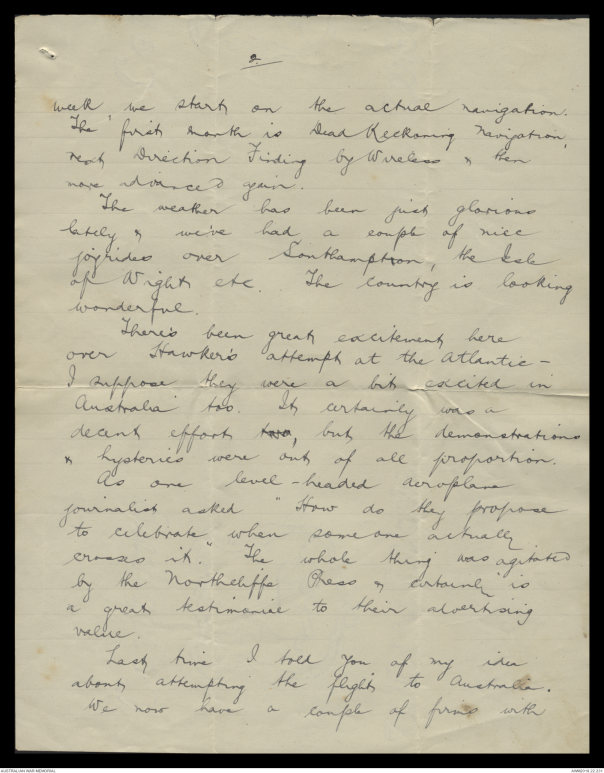 2.
week we start on the actual navigation.
The first month is Dead Reckoning Navigation,
next Direction Finding by Wireless & then
more advanced again.
The weather has been just glorious
lately & we've had a couple of nice
joyrides over Southampton, the Isle
of Wight etc. The country is looking
wonderful.
There's been great excitement here
over Hawker's attempt at the Atlantic –
I suppose they were a bit excited in
Australia too. It certainly was a
decent effort too, but the demonstrations
& hysterics were out of all proportion.
As one level-headed aeroplane
journalist asked "How do they propose
to celebrate when some one actually
crosses it." The whole thing was agitated
by the Northcliffe Press & certainly is
a great testimonial to their advertising
value.
Last time I told you of my idea
about attempting the flight to Australia.
We now have a couple of firms with
AUSTRALIAN WAR MEMORIAL